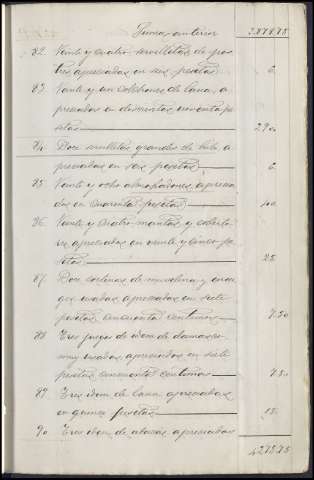 Suma anterior 3878.75
82. Veinte y cuatro servilletas de pos-
tres apreciadas en seis pesetas 6
83. Veinte y un colchones de lana, a
preciados en doscientas noventa pe-
setas 290
84. Doce grandes de hilo a
preciadas en seis pesetas 6
85. Veinte y ocho almohadones aprecia-
dos en cuarenta pesetas 40
86. Veinte y cuatro mantas y coberto-
res apreciadas en veinte y cinco pe-
setas 25
87. Dos cortinas de muselina y enca-
ges usadas apreciadas en siete
pesetas cincuenta centimos 7.50
88. Tres juegos de idem de damasco
muy usadas apreciados en siete
pesetas cincuenta centimos 7.50
89. Tres idem de lana apreciadas
en quince pesetas 15
90. Tres idem de apreciadas
4275.75